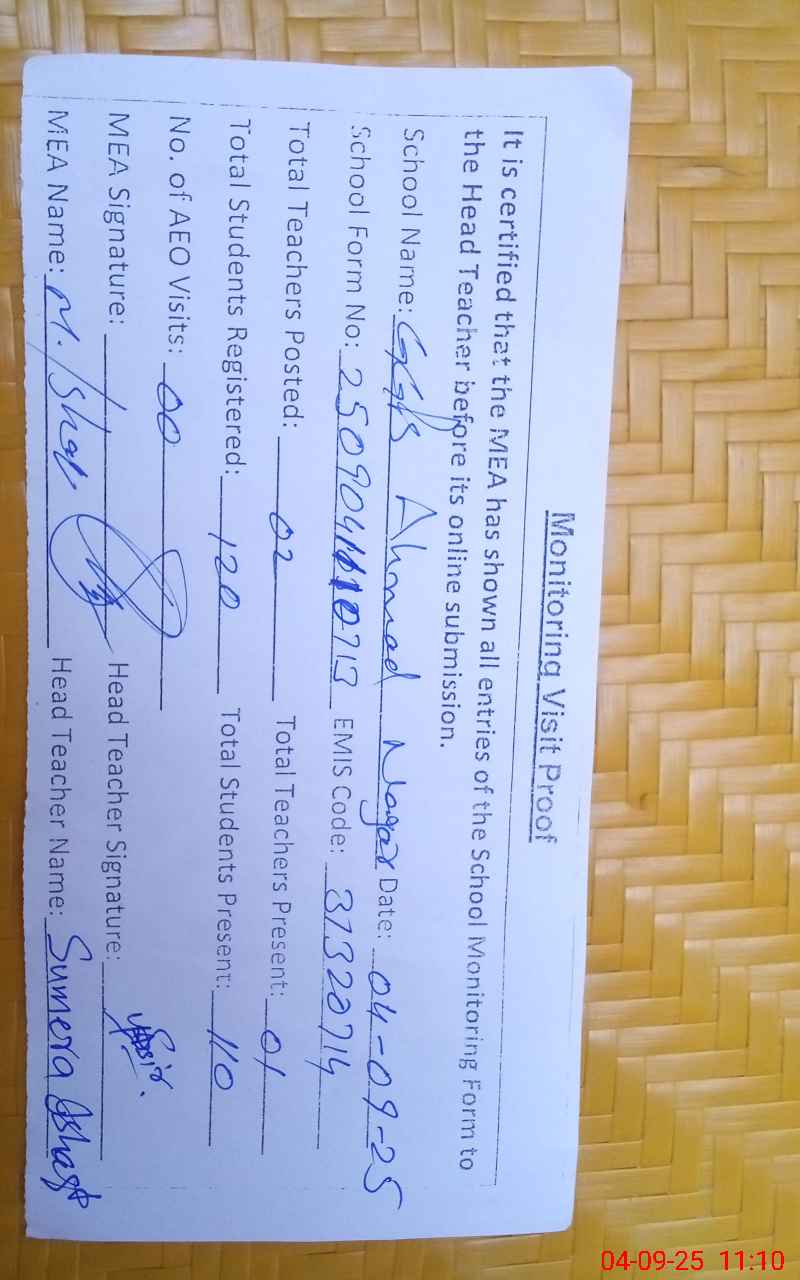 Monitoring Visit Proof
It is certified that the MEA has shown all entries of the School Monitoring Form to
the Head Teacher before its online submission.
School Name: Ahmad Nagar Date: 04-09-25
School Form No: EMIS Code: 31320714
Total Teachers Posted: 02 Total Teachers Present: 01
Total Students Registered: 120 Total Students Present: 110
No. of AEO Visits: 00
MEA Signature: Head Teacher Signature:
MEA Name: M. Head Teacher Name: Sumera
04-09-25 11:10